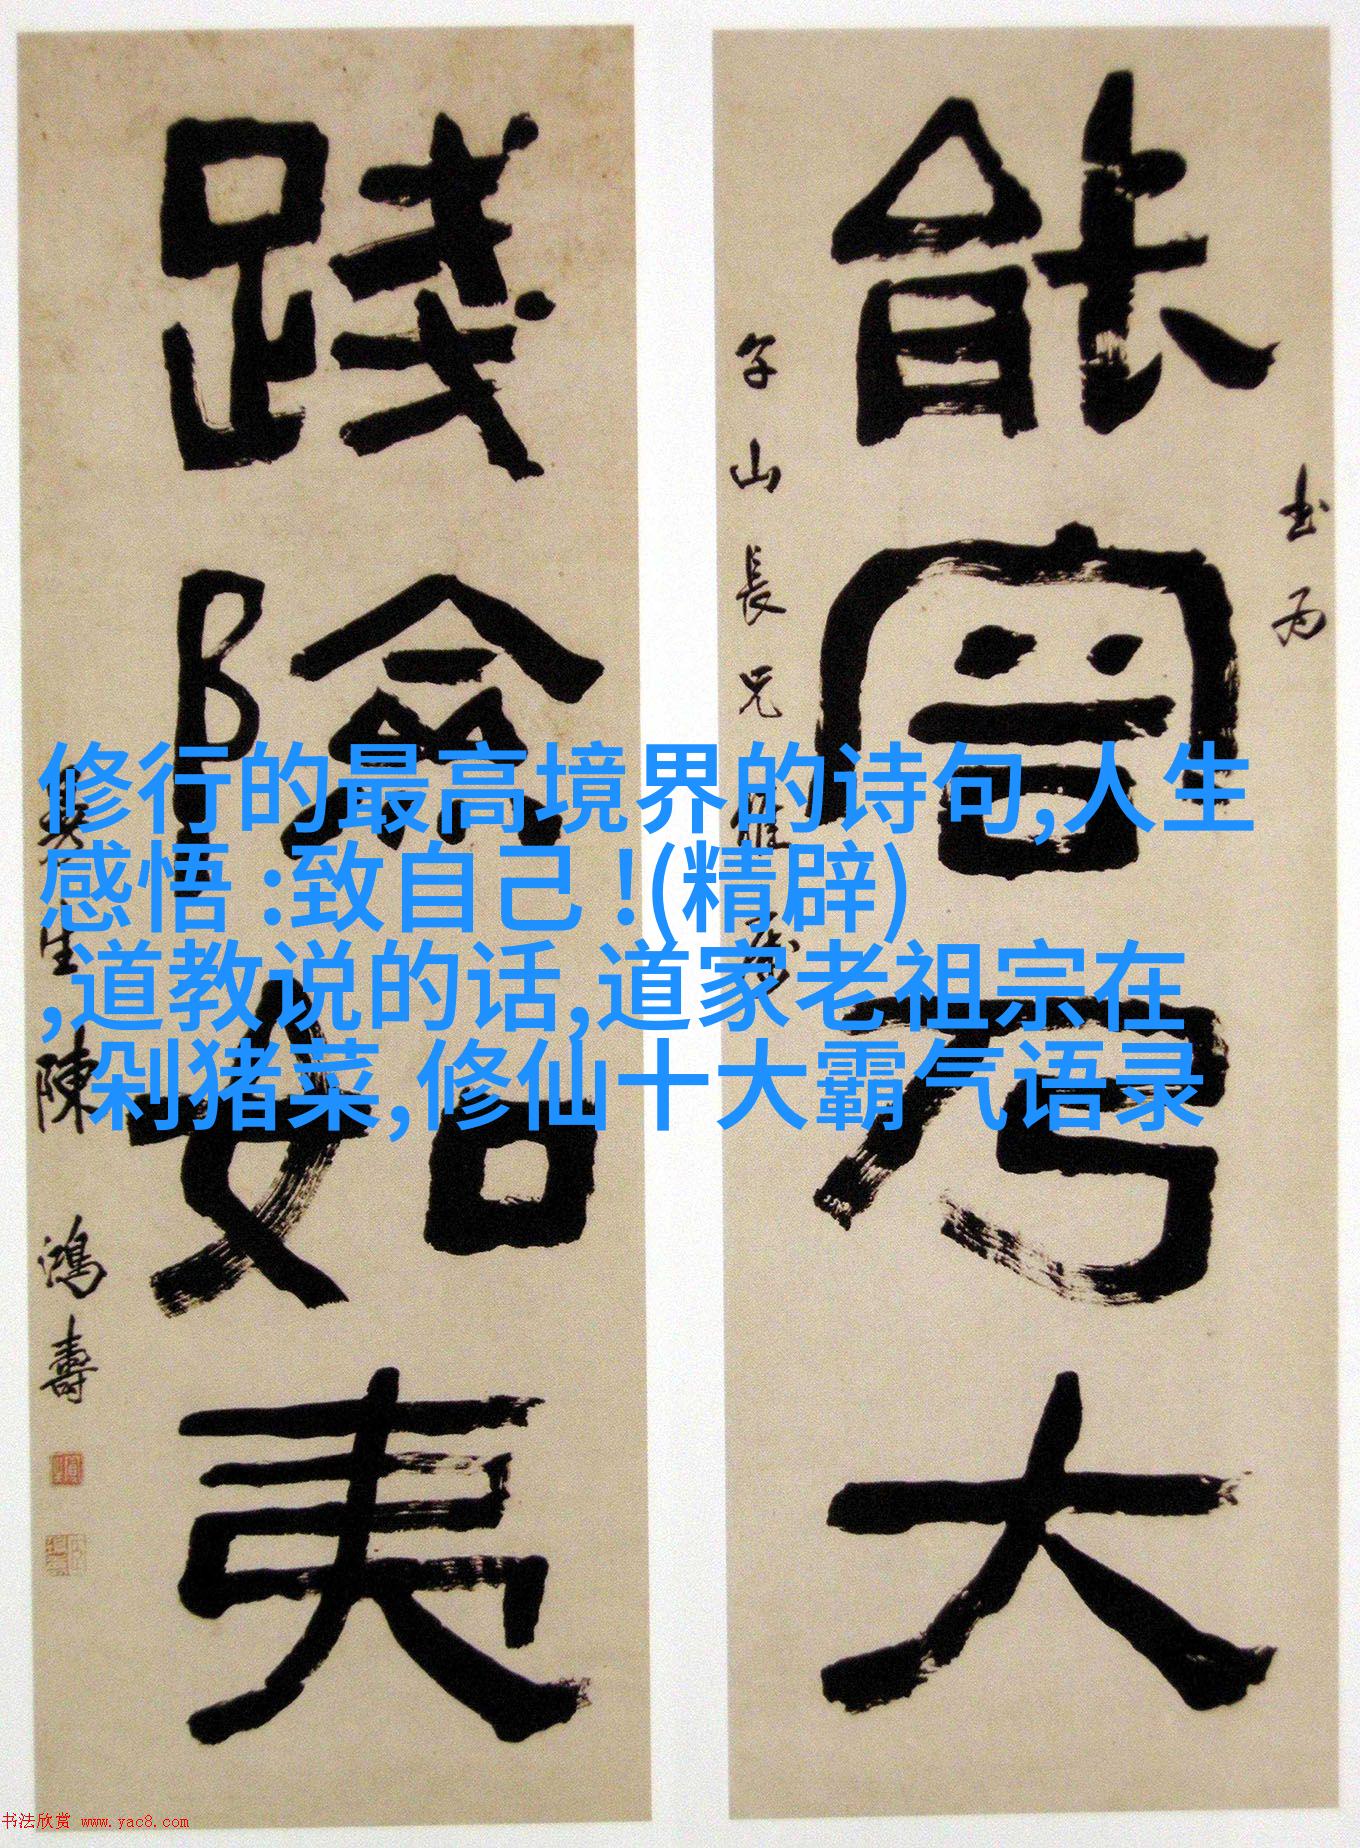 能容乃大
书为
午山長兄雅属
踐險如夷
曼生陳鴻壽
修行的最高境界的诗句,人生
感悟 :致自己 !(精辟)
,道教说的话,道家老祖宗在
剁猪菜,修仙十大霸气语录
书法欣赏 www.yac8.com